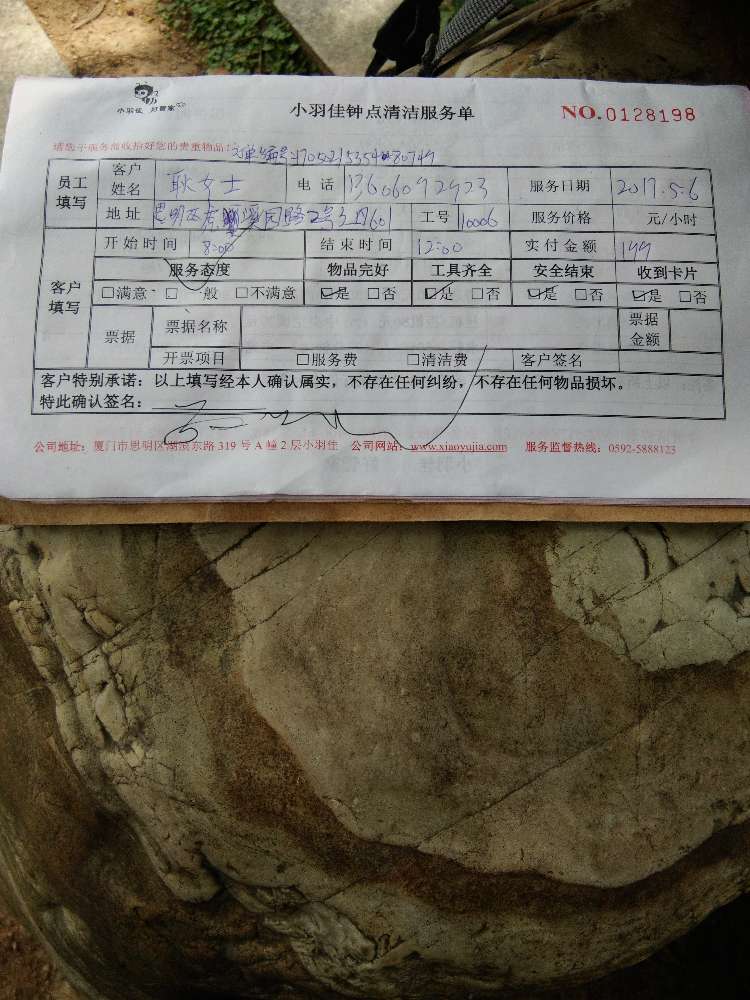 小羽佳 好管家
小羽佳钟点清洁服务单
NO.0128198
请您于服务前收拾好您的贵重物品!
员工填写 客户姓名 耿女士 电话 13606092923 服务日期 2017.5.6
地址 思明区虎 溪 路2号 601 工号 10006 服务价格 元/小时
客户填写 开始时间 8:00 结束时间 12:00 实付金额 199
服务态度 物品完好 工具齐全 安全结束 收到卡片
□满意 □一般 □不满意 ☑是 □否 ☑是 □否 ☑是 □否 ☑是 □否
票据 票据名称 票据金额
开票项目 □服务费 □清洁费 客户签名
客户特别承诺:以上填写经本人确认属实,不存在任何纠纷,不存在任何物品损坏。
特此确认签名:
公司地址:厦门市思明区湖滨东路 319 号 A 幢 2 层小羽佳 公司网站:www.xiaoyujia.com 服务监督热线:0592-5888123